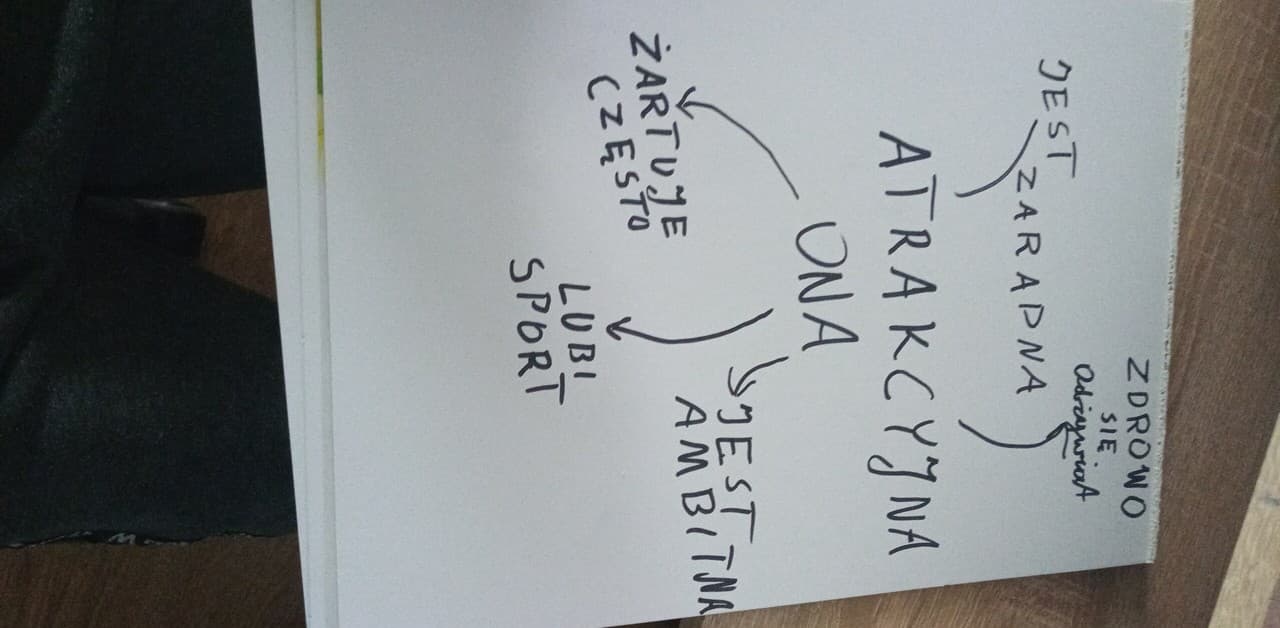 ZDROWO
SIĘ
JEST ZARADNA
ATRAKCYJNA
ONA
JEST
AMBITNA
ŻARTUJE
CZĘSTO
LUBI
SPORT